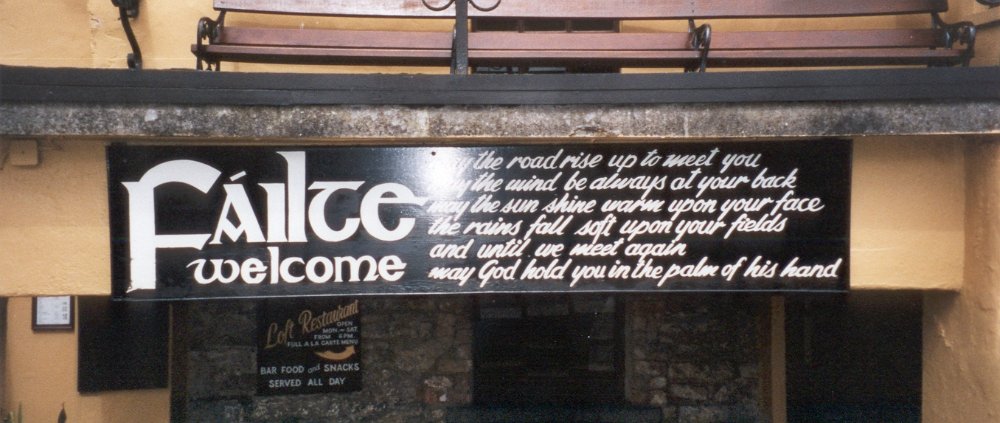 Fáilte
welcome
may the road rise up to meet you
may the wind be always at your back
may the sun shine warm upon your face
the rains fall soft upon your fields
and until we meet again
may God hold you in the palm of his hand
Loft Restaurant
OPEN
MON. - SAT.
FROM 6 PM.
FULL A LA CARTE MENU
BAR FOOD and SNACKS
SERVED ALL DAY